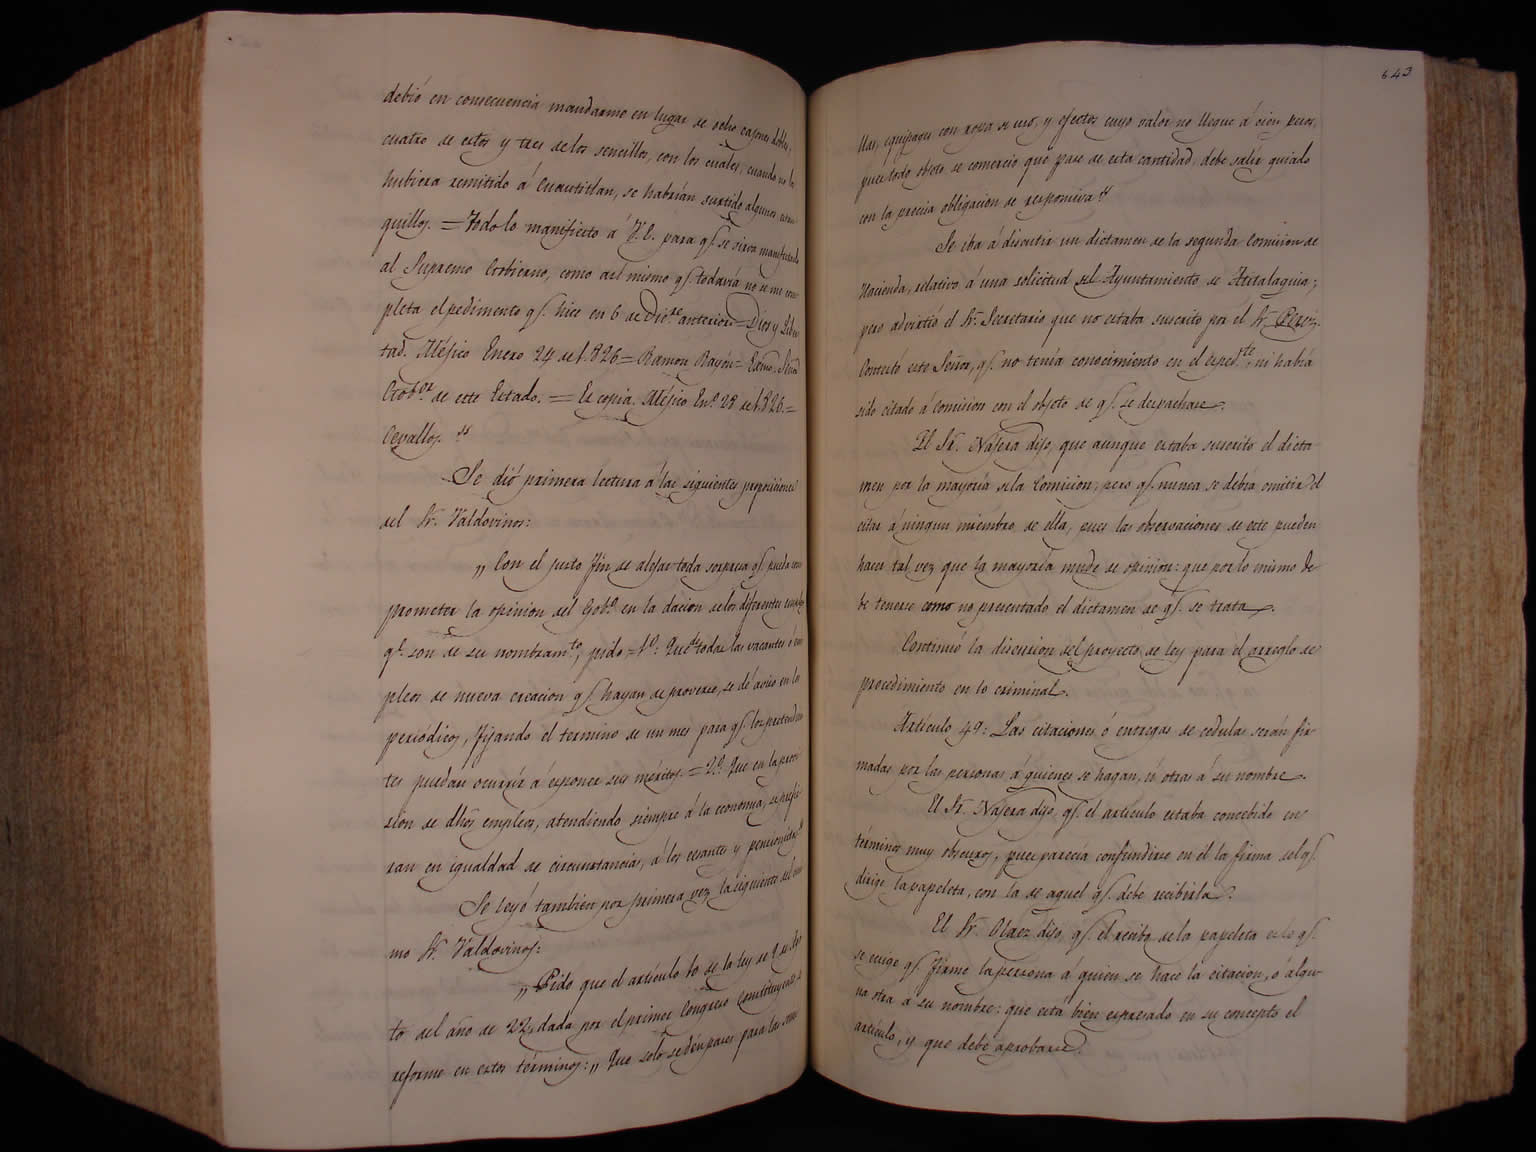 debió en consecuencia mandarme en lugar de ocho cajones dobles,
cuatro de estos y tres de los sencillos, con los cuales, cuando no lo
hubiera remitido á Cuautitlan, se habrian surtido algunos
quillos. = Todo lo manifiesto á V.E. para q.e se sirva manifestarlo
al Supremo Gobierno, como asi mismo q.e todavía no se me com
pleta el pedimento q.e hice en 6 de Dic.re anterior = Dios y Liber
tad. Méjico Enero 24 de 1826 = Ramon Rayón = Exmo. Señor
Gob.or de este Estado. = Es copia. Méjico En.o 28 de 1826. =
Cevallos. "
Se dió primera lectura á las siguientes proposiciones
del Sr. Valdovinos:
„ Con el justo fin de alejar toda sorpresa q.e pueda com
prometer la opinion del Gob.o en la dacion de los diferentes empleos
q.e son de su nombram.to, pido = 1.a: Que de todas las vacantes ó em
pleos de nueva creacion q.e hayan de proveerse, se dé aviso en los
periódicos, fijando el termino de un mes para q.e los pretendien
tes puedan ocurrir á esponer sus méritos. = 2.a Que en la provi
sion de dhos empleos, atendiendo siempre á la economia, se prefie
ran en igualdad de circunstancias, á los cesantes y pensionistas "
Se leyó tambien por primera vez la siguiente del mis
mo Sr. Valdovinos:
„ Pido que el artículo 10 de la ley de 9 de Agos
to del año de 22, dada por el primer Congreso Constituyente se
reforme en estos términos: „ Que solo se den pases para las
643
llas, equipages con ropa de uso, y efectos cuyo valor no llegue á cien pesos,
pues todo objeto de comercio que pase de esta cantidad, debe salir guiado
con la precisa obligacion de responsiva "
Se iba á discutir un dictamen de la segunda Comision de
Hacienda, relativo á una solicitud del Ayuntamiento de Atitalaquia;
pero advirtió el Sr. Secretario que no estaba suscrito por el Sr. Perez.
Contestó este Señor, q.e no tenía conocimiento en el esped.te, ni habia
sido citado á comision con el objeto de q.e se despachase.
El Sr. Najera dijo, que aunque estaba suscrito el dicta
men por la mayoría de la Comision; pero q.e nunca se debia omitir el
citar á ningun miembro de ella, pues las observaciones de este pueden
hacer tal vez que la mayoria mude de opinion: que por lo mismo de
be tenerse como no presentado el dictamen de q.e se trata.
Continuó la discusion del proyecto de ley para el arreglo de
procedimiento en lo criminal.
Artículo 49: Las citaciones ó entregas de cedulas serán fir
madas por las personas á quienes se hagan, ú otras á su nombre.
El Sr. Najera dijo, q.e el artículo estaba concebido en
términos muy obscuros, pues parecia confundirse en él la firma del q.e
dirige la papeleta, con la de aquel q.e debe recibirla.
El Sr. Olaez dijo, q.e el recibo de la papeleta es lo q.e
se exige q.e firme la persona á quien se hace la citacion, ó algu
na otra á su nombre: que está bien espresado en su concepto el
artículo, y que debe aprobarse.